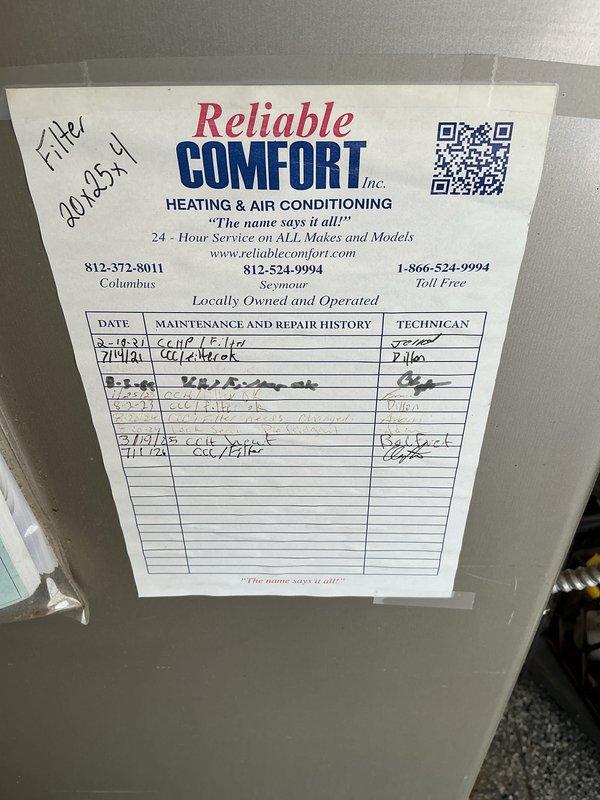 Filter
20x25x4
Reliable
COMFORT Inc.
HEATING & AIR CONDITIONING
"The name says it all!"
24 - Hour Service on ALL Makes and Models
www.reliablecomfort.com
812-372-8011 812-524-9994 1-866-524-9994
Columbus Seymour Toll Free
Locally Owned and Operated
DATE MAINTENANCE AND REPAIR HISTORY TECHNICAN
2-10-21 CCHP/Filter
7/14/21 CCC/Filter ok Dillon
1/25/23 CCH/Filter OK
8-2-23 CCC/filter ok Dillon
CCC/Filter needs changed
3/19/25 CCH
CCC/Filter
"The name says it all!"